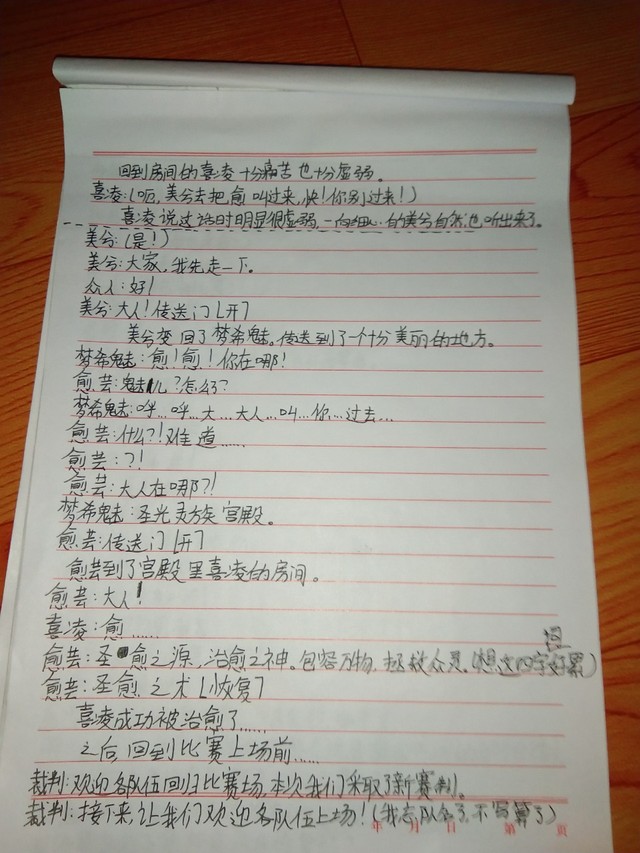 回到房间的喜凌十份痛苦也十份虚弱。
喜凌:(呃,美兮去把愈叫过来,快!你别过来!)
喜凌说这话时明显很虚弱,一向细心的美兮自然也听出来了。
美兮:(是!)
美兮:大家,我先走一下。
众人:好!
美兮:大人!传送门[开]
美兮变回了梦希魅。传送到了一个十分美丽的地方。
梦希魅:愈!愈!你在哪!
愈芸:魅儿?怎么了?
梦希魅:呼…呼…大…大人…叫…你…过去…
愈芸:什么?!难道……
愈芸:?!
愈芸:大人在哪?!
梦希魅:圣光灵族宫殿。
愈芸:传送门[开]
愈芸到了宫殿里喜凌的房间。
愈芸:大人!
喜凌:愈……
愈芸:圣愈之源,治愈之神。包容万物,拯救众灵。(想这四字好累)
愈芸:圣愈之术[恢复]
喜凌成功被治愈了……
之后,回到比赛上场前……
裁判:欢迎各队伍回归比赛场,本次我们采取了新赛制。
裁判:接下来,让我们欢迎各队伍上场!(我忘队名了,不写算了)
年 月 日 第 页